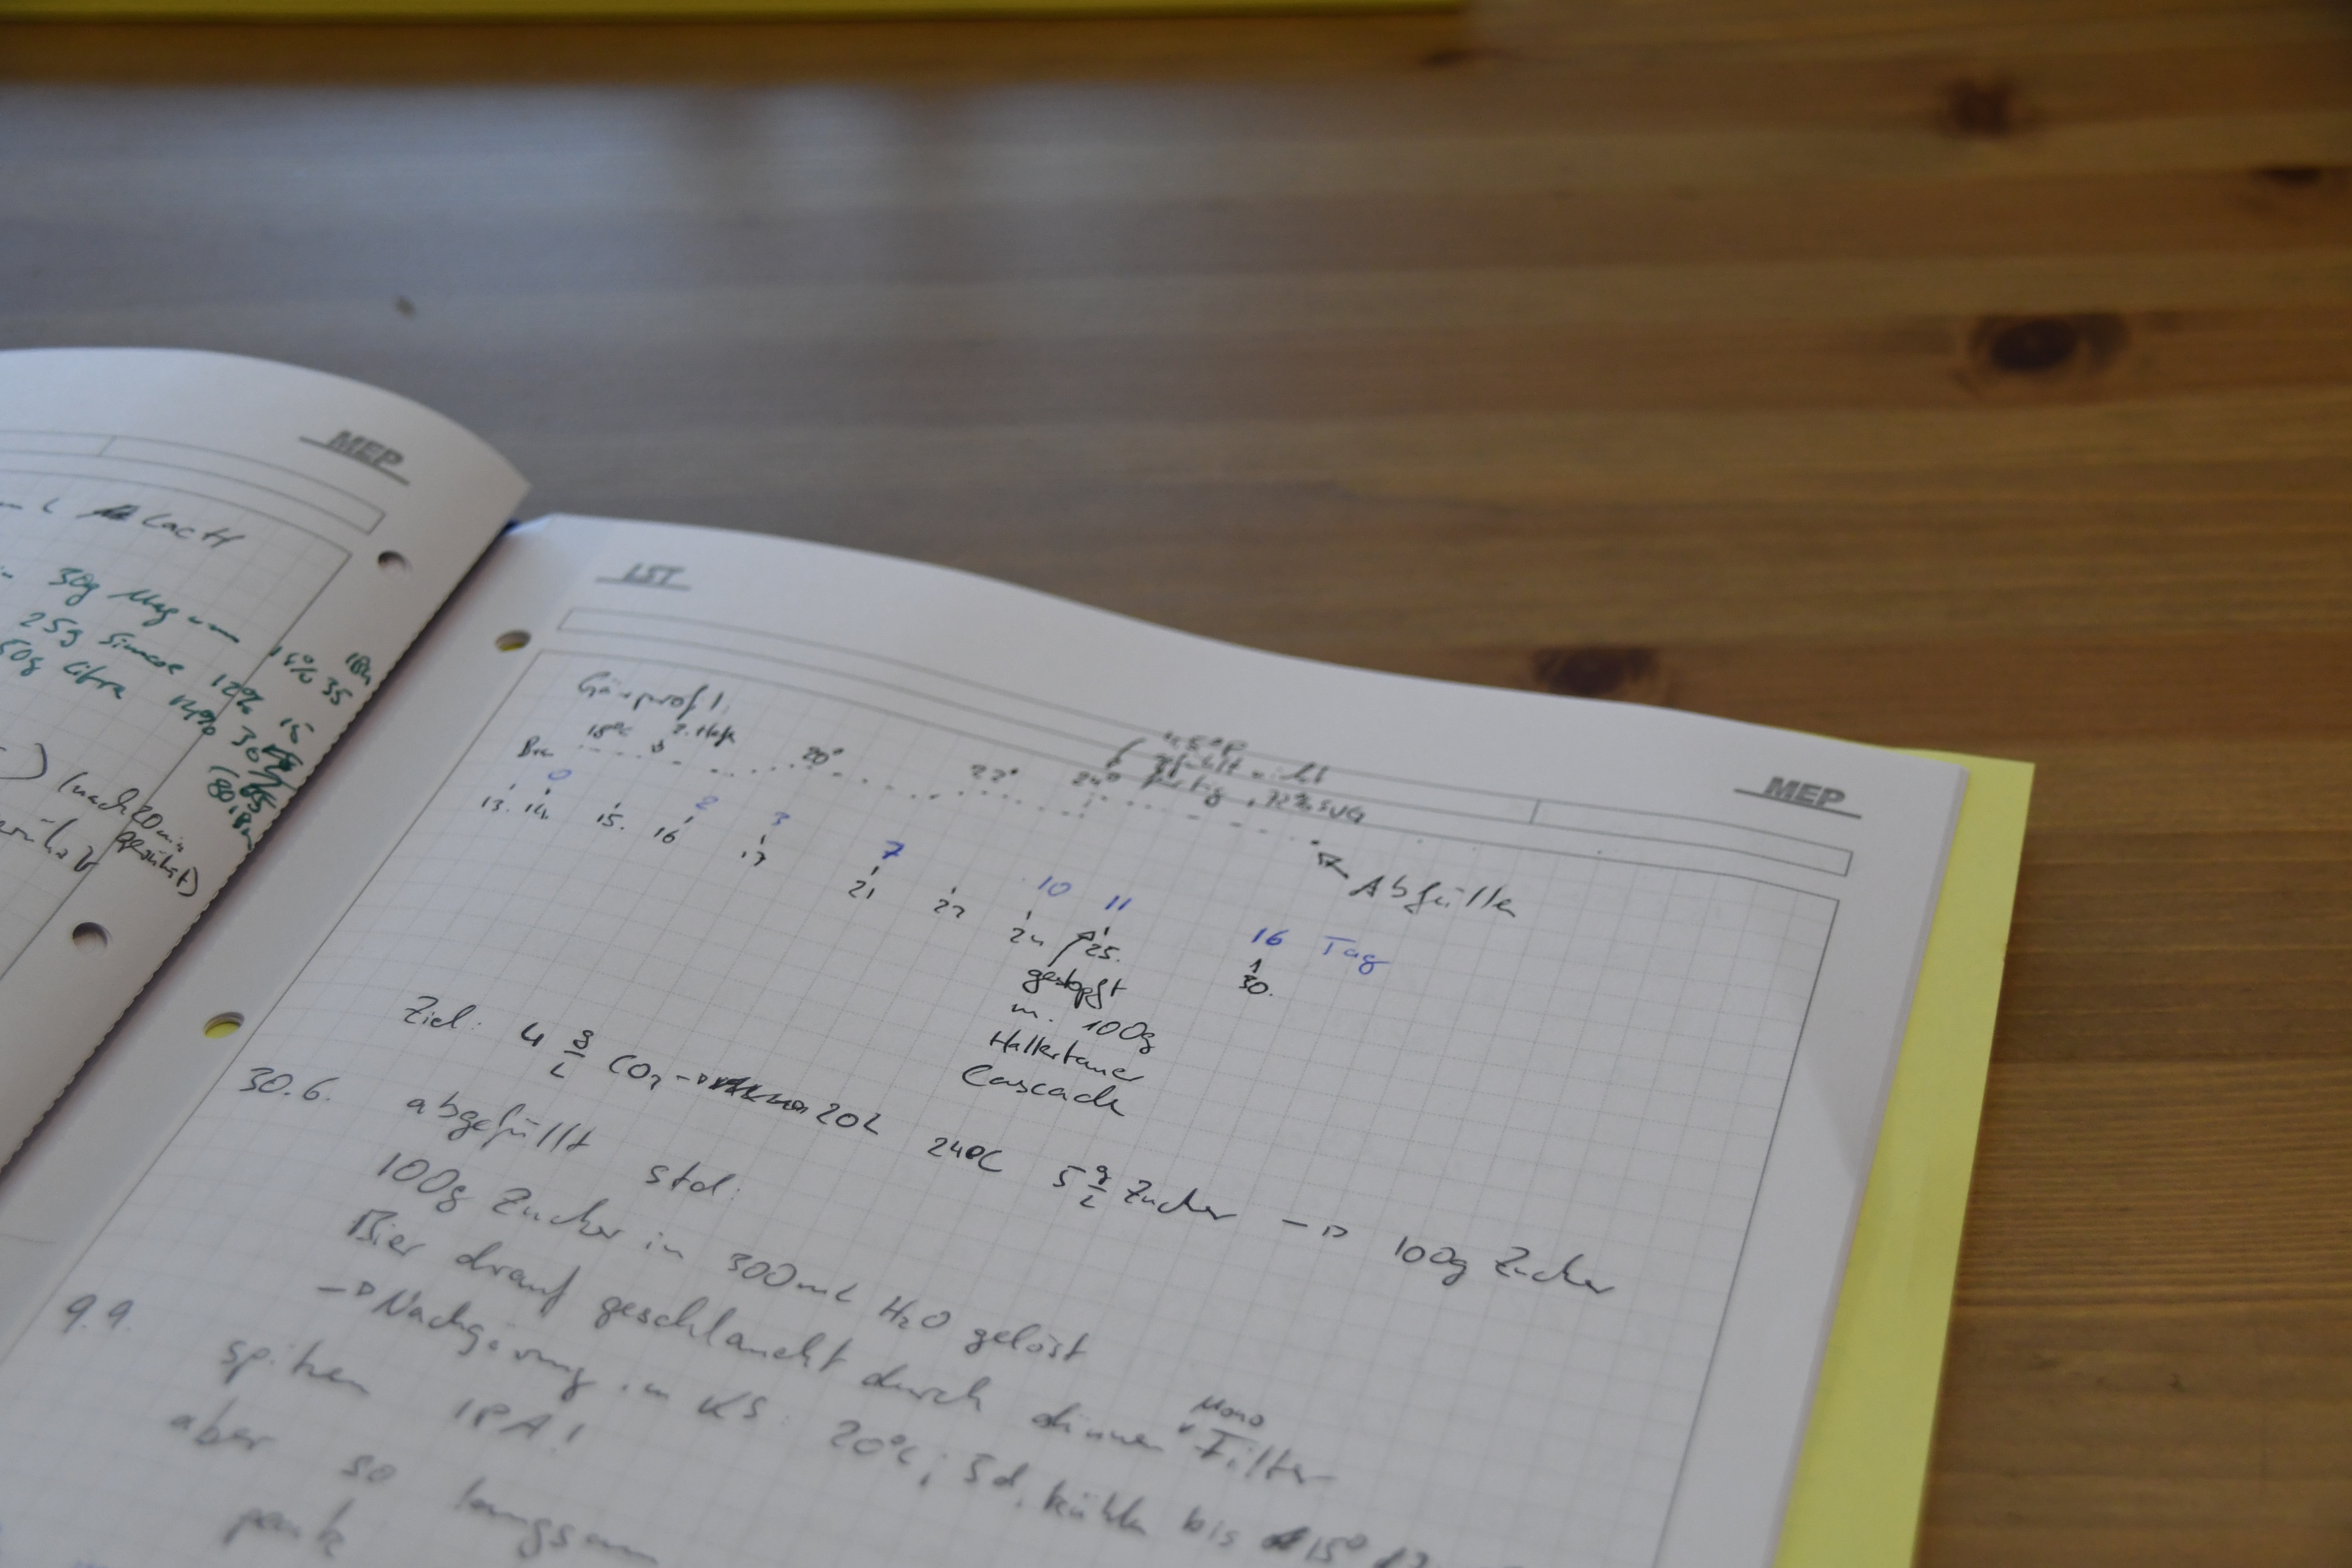 MEP
LactH
30g Magnum 15% 35
25g Simcoe 12% 15
50g Citra
(nach 20 min
gerührt)
LST
MEP
Gärprofil
18°C 2. Hefe 20° 22° 24°
4,5°P
gefällt nicht
fertig, 72% SVG
Abfüllen
0 2 3 7 10 11 16 Tag
13. 14. 15. 16 17 21 22 24 25. 30.
gestopft
m. 100g
Hallertauer
Cascade
Ziel: 4 g/L CO2 → 20L 24°C 5 g/L Zucker → 100g Zucker
30.6. abgefüllt std:
100g Zucker in 300mL H2O gelöst
Bier drauf geschlaucht durch dünnen Mono Filter
→ Nachgärung im KS: 20°C; 3d, kühlen bis 15°
9.9. spitzen IPA!
aber so langsam